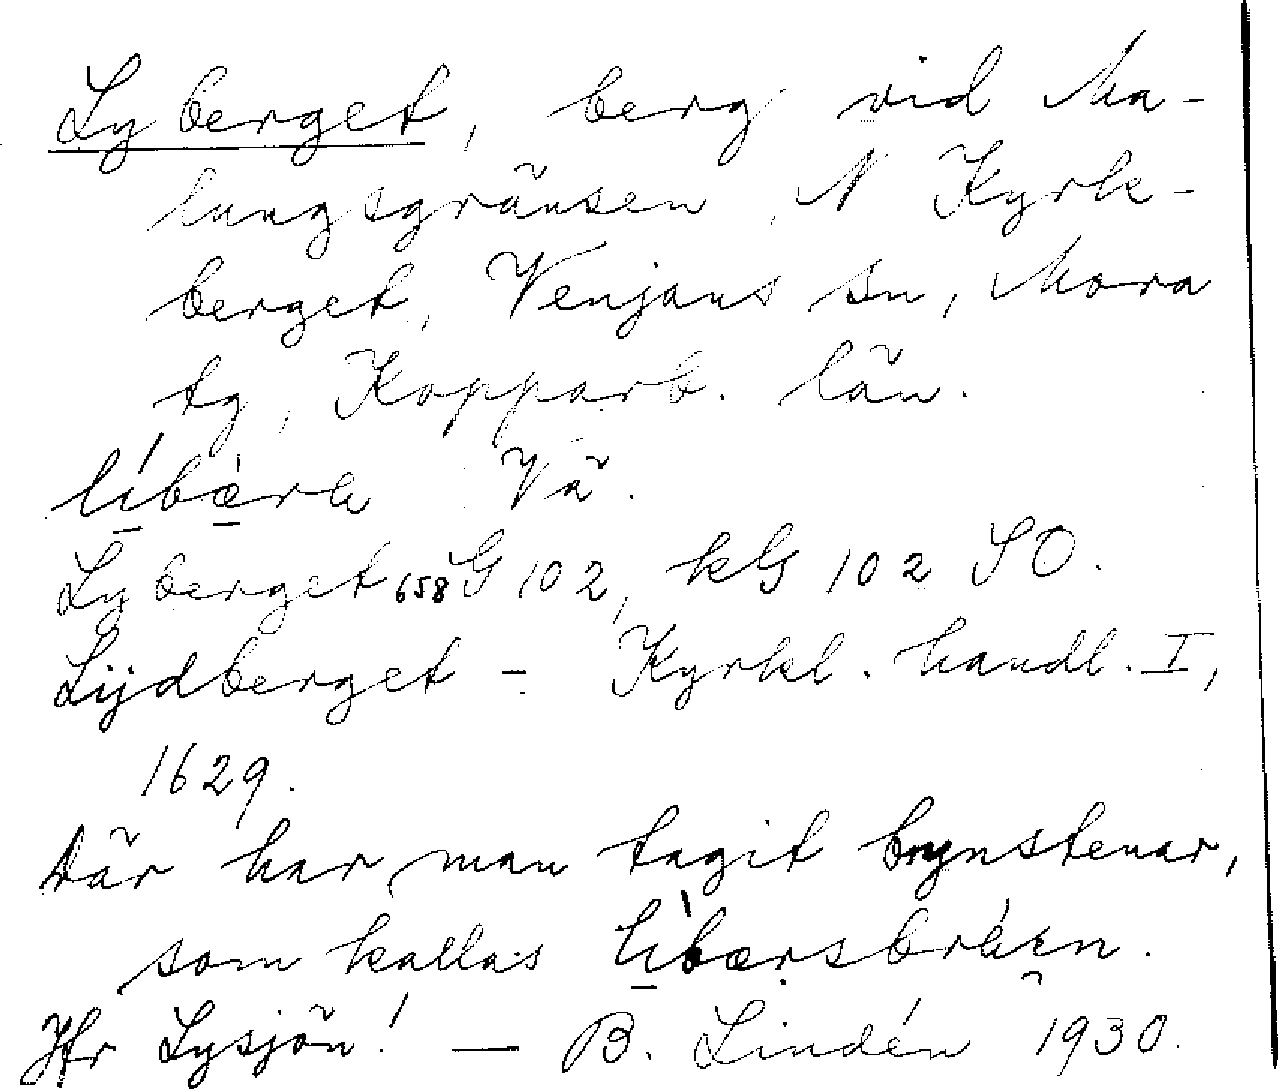 Lyberget, berg vid Ma-
lungsgränsen, N Kyrk-
berget, Venjans sn, Mora
tg, Kopparb. län.
Vä.
Lyberget 658 G 102, kG 102 SO.
Lijdberget - Kyrkl. handl. I,
1629.
Där har man tagit brynstenar,
som kallas
Jfr Lysjön! — B. Lindén 1930.